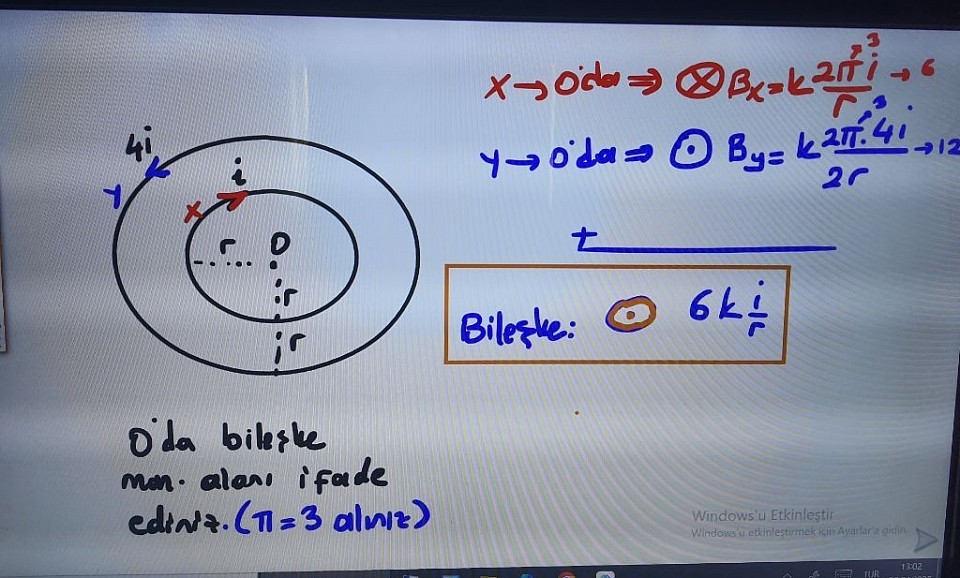 x → O'da ⇒ ⊗ Bx = k 2π³i/r → 6
y → O'da ⇒ ⊙ By = k 2π³.4i/2r → 12
+
Bileşke: ⊙ 6k i/r
4i
y
i
x
r
O
r
r
O'da bileşke
man. alanı ifade
ediniz. (π = 3 alınız)
Windows'u Etkinleştir
Windows'u etkinleştirmek için Ayarlar'a gidin.
TUR
13:02